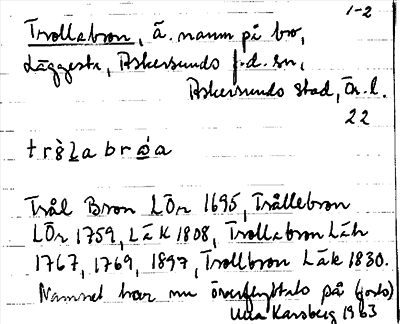 1-2
Trollabron, ä. namn på bro,
Läggesta, Askersunds f.d. sn,
Askersunds stad, Ör. l.
22
Trål Bron LÖr 1695, Trållebron
LÖr 1759, LäK 1808, Trollabron Läh
1767, 1769, 1897, Trollbron LäK 1830.
Namnet har nu överflyttats på (forts)
Ulla Karsberg 1963